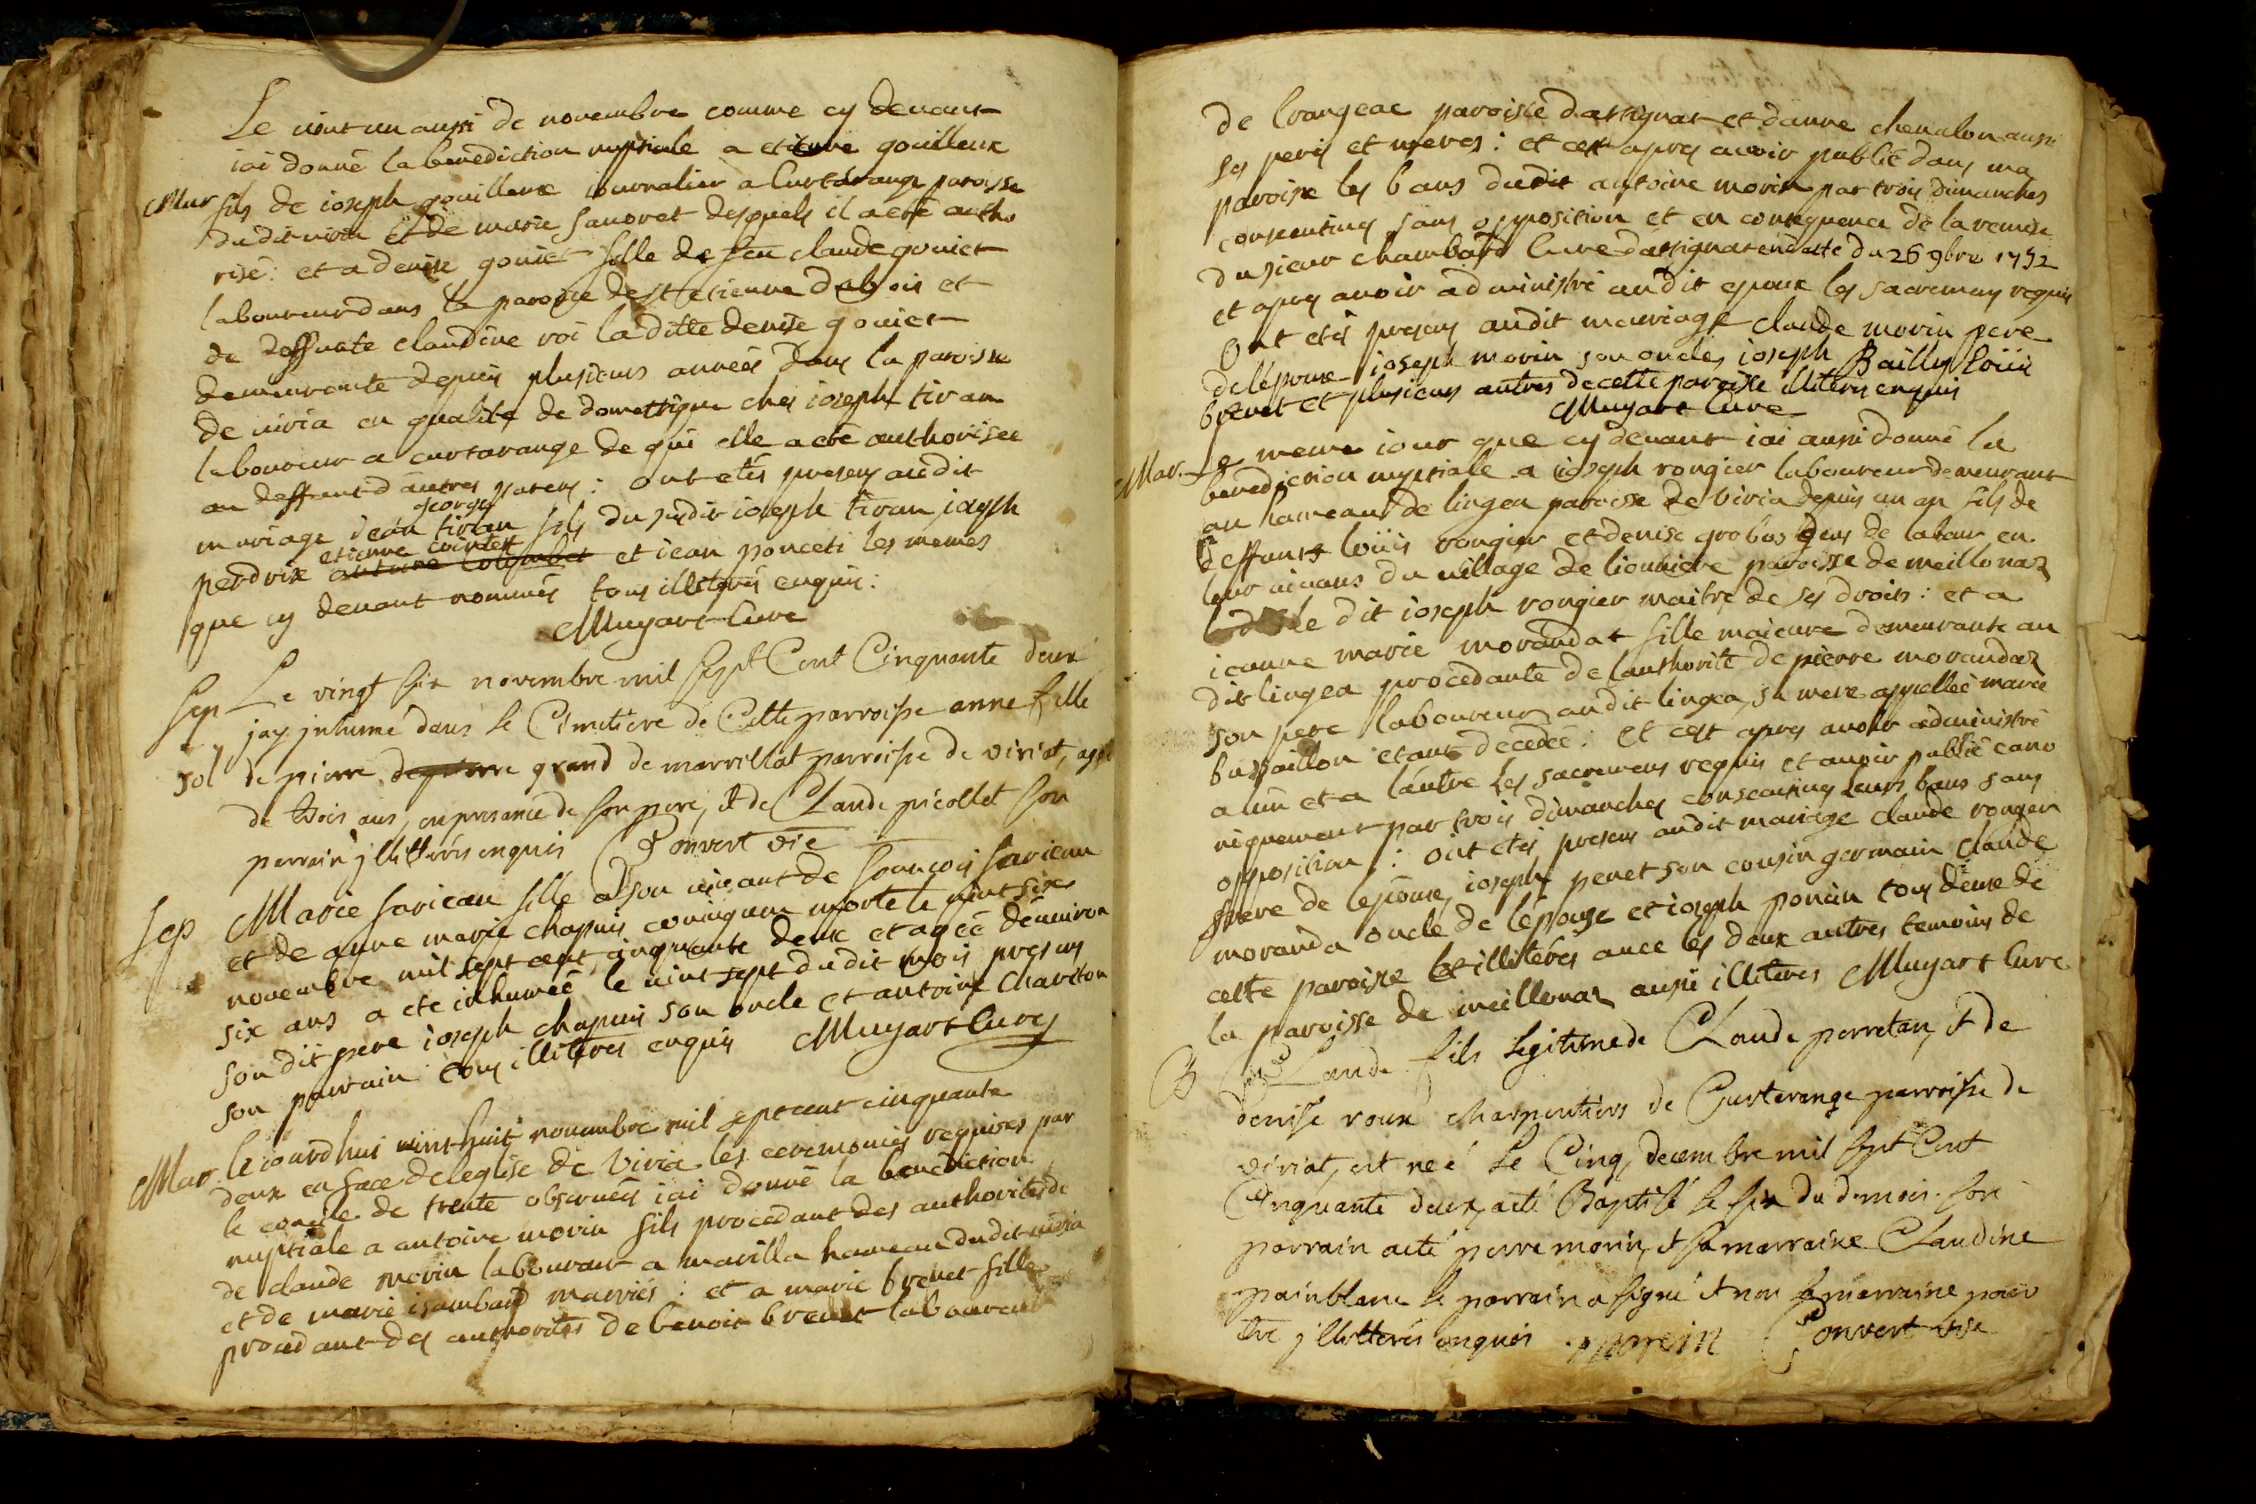 Le vint un aussi de novembre comme cy devant
iai donné la benediction nuptiale a etienne gouilleux
Mar fils de ioseph gouilleux iournalier a Curtarange paroisse
dudit viria et de marie sauoret desquels il a eté autho
risé : et a denise gouiet fille de feu claude gouiet
laboureur dans la paroisse de st etienne dubois et
de deffunte claudine roi laditte denise gouiet
demeurante depuis plusieurs années dans la paroisse
de viria en qualité de domestique ches ioseph tiran
laboureur a curtarange de qui elle a eté authorisee
au deffaut d'autres parens : ont etés presens audit
george
mariage iean tiran fils du susdit ioseph tiran ioseph
etienne cointet
perdrix antoine Colombet et iean ponceti les memes
que cy devant nommés tous illiterés enquis :
Muyart Cure
Sep Le vingt six novembre mil Sept Cent Cinquante deux
jay jnhumé dans le Cimetiere de Cette parroisse anne fille
sol de pierre de pierre grand de marrillat parroisse de viriat, agé
de trois ans, en presence de son pere, et de Claude picollet son
perrain jllitterés enquis Convert vic
Sep Marie sarieau fille a son vivant de francois sarieau
et de anne marie chapuis coniugum morte le vint six
novembre mil sept cent cinquante deux et agée d'environ
six ans a ete inhumée le vint sept dudit mois presens
son dit pere ioseph chapuis son oncle et antoine Chariton
son parrain tous illiterés enquis Muyart Cure
Mar. le iourdhui vint huit novembre mil sept cent cinquante
deux en face de leglise de Viria les ceremonies requises par
le concile de trente observées iai donné la benediction
nuptiale a antoine morin fils procedant des authorités de
de claude morin laboureur a marilla hameau dudit viria
et de marie isambard mariés : et a marie brevet fille
procedant des authorités de benoit brevet laboureur
de Crangeac paroisse d'attignat et danne chevalon aussi
ses peres et meres : et cest apres avoir publié dans ma
paroisse les bans dudit antoine morin par trois dimanches
consecutives sans opposition et en consequence de la remise
du sieur Chambard Cure dattignat en datte du 26 9bre 1752
et apres avoir administré audit epoux les sacremens requis
Ont etés presens audit mariage claude morin pere
de lépoux ioseph morin son oncle, ioseph Bailly louis
brevet et plusieurs autres de cette paroisse illiterés enquis
Muyart Cure
Mar. Le meme iour que cy devant iai aussi donné la
benediction nuptiale a ioseph rongier laboureur demeurant
au hameau de lingea paroisse de Viria depuis un an fils de
deffunts loüis rongier et denise grobas gens de labeur en
leur vivans du village de lionniere paroisse de meillonaz
le dit ioseph rongier maitre de ses droits : et a
ieanne marie morandat fille maieure demeurante au
dit lingea procedante de lauthorité de pierre morandaz
son pere laboureur audit lingea, sa mere appellée marie
bussaillon etant decedée : et cest apres avoir administré
a lun et a lautre les sacremens requis et avoir publié cano
niquement par trois dimanches consecutives leurs bans sans
opposition : ont etés presens audit mariage claude rongier
frere de lepoux, ioseph penet son cousin germain Claude
moranda oncle de lépouse et ioseph ponein tous deux de
cette paroisse et illiterés avec les deux autres temoins de
la paroisse de meillonaz aussi illiteres Muyart Cure
B Claude fils legitime de Claude perretan, et de
denise roux charpentiers de Curtarange parroisse de
viriat, est neé le Cinq, decembre mil Sept Cent
Cinquante deux, a eté Baptisé le six du d. mois. son
parrain a eté pierre morin, et sa marraine Claudine
painblanc le parrain a signé et non la marraine pour
être jllitterés enquis . p morin Convert vic